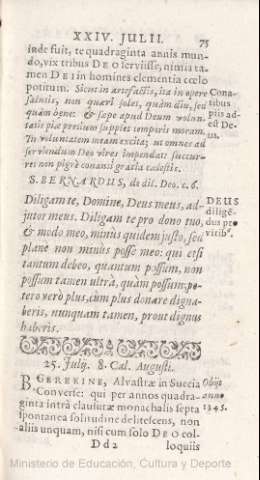 XXIV. JULII. 75
inde fuit, te quadraginta annis mun-
do, vix tribus DEO servisse, nimia ta-
men DEI in homines clementia cœlo
potitum. Sicut in artefactis, ita in opere
salutis, non quæri solet, quàm diu, sed
quàm bene: & sæpe apud Deum volun-
tatis piæ pretium supplet temporis moram.
In voluntatem intam excita; ut omnes ad
serviendum Deo vires impendat: succur-
ret non pigrè conanti gratia cœlestis.
Cona-
tibus
piis ad-
est De-
us.
S. BERNARDUS, de dil. Deo. c. 6.
Diligam te, Domine, Deus meus, ad-
jutor meus. Diligam te pro dono tuo,
& modo meo, minùs quidem justo, sed
plane non minùs posse meo: qui etsi
tantum debeo, quantum possum, non
possum tamen ultrà, quàm possum; po-
tero verò plus, cùm plus donare digna-
beris, nunquam tamen, prout dignus
haberis.
DEUS
diligē-
dus pro
viribꝰ.
25. Julij. 8. Cal. Augusti.
BGEREKINE, Alvastræ in Suecia
Conversæ: qui per annos quadra-
ginta intrà clausuræ monachalis septa
spontanea solitudine delitescens, non
aliis unquam, nisi cum solo DEO col-
Obijt
anno
1345.
Dd2 loquiis
Ministerio de Educación, Cultura y Deporte